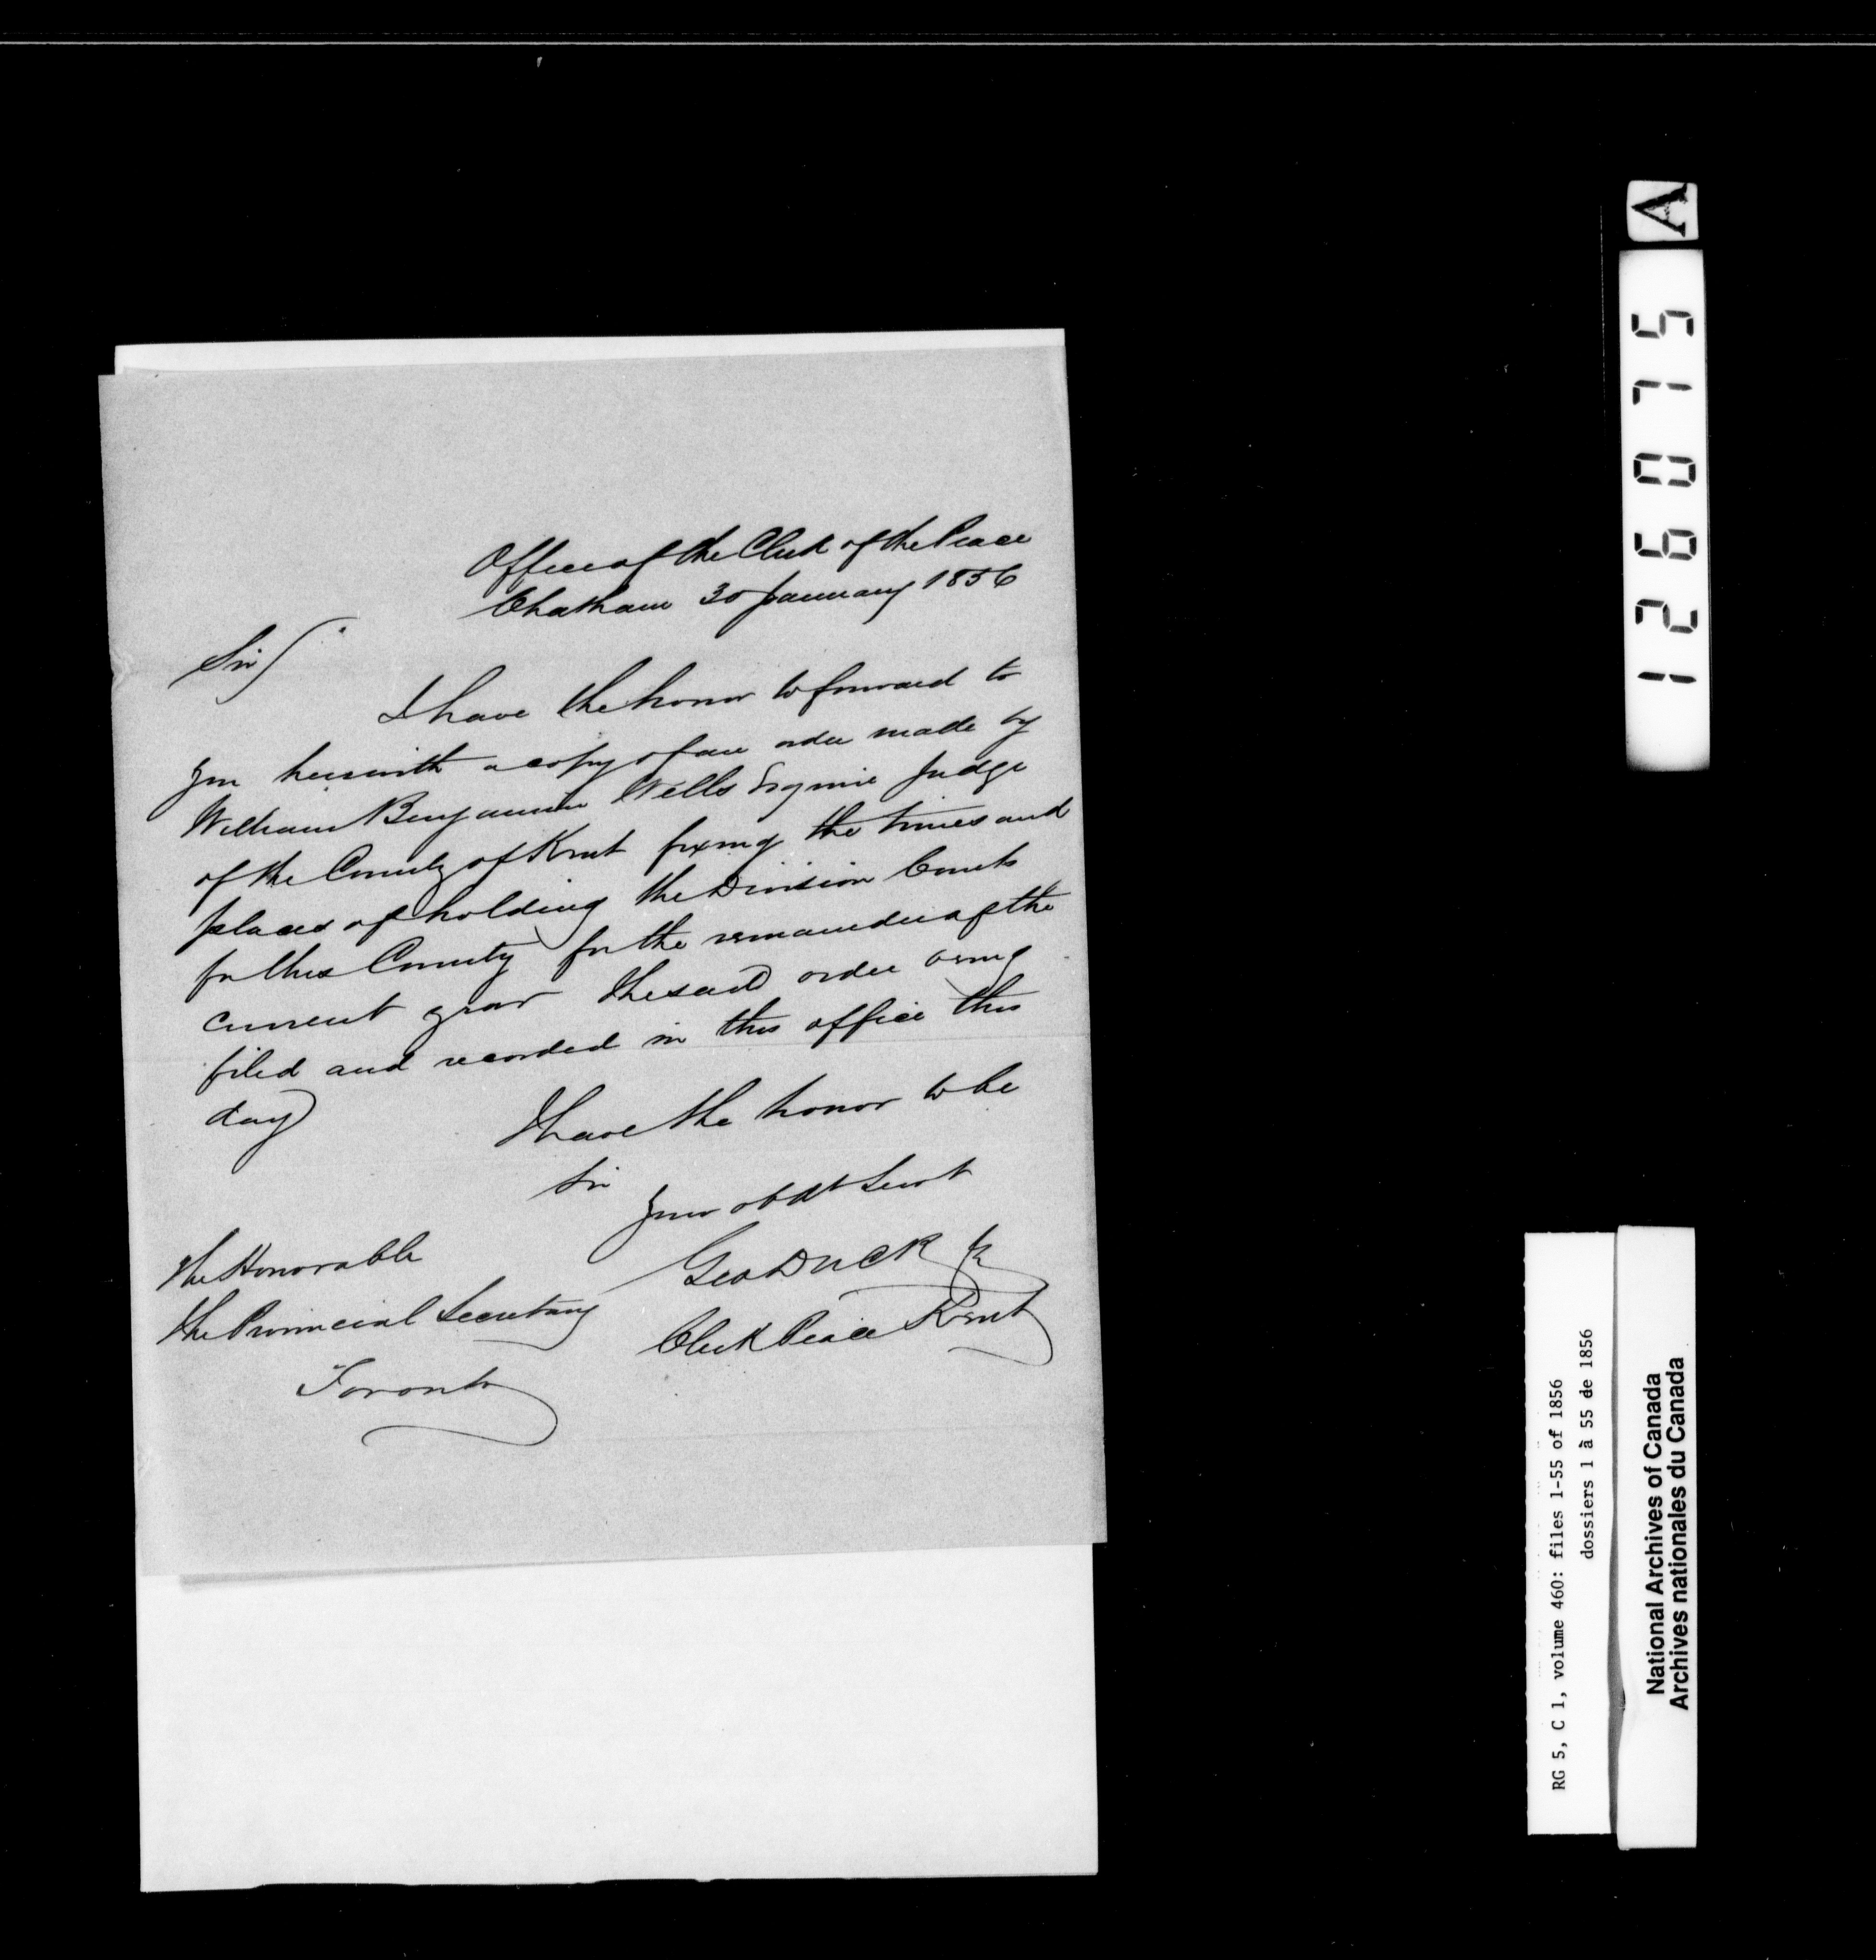 Office of the Clerk of the Peace
Chatham 30 January 1856
Sir
I have the honor to forward to
you herewith a copy of an order made by
William Benjamin Wells Esquire Judge
of the County of Kent fixing the times and
places of holding the Division Courts
for this County for the remainder of the
current year the said order being
filed and recorded in this office this
day
I have the honor to be
Sir
your obdt Servt
Geo Duck Jr
Clerk Peace Kent
The Honorable
The Provincial Secretary
Toronto
A
126075
RG 5, C 1, volume 460: files 1-55 of 1856
dossiers 1 à 55 de 1856
National Archives of Canada
Archives nationales du Canada